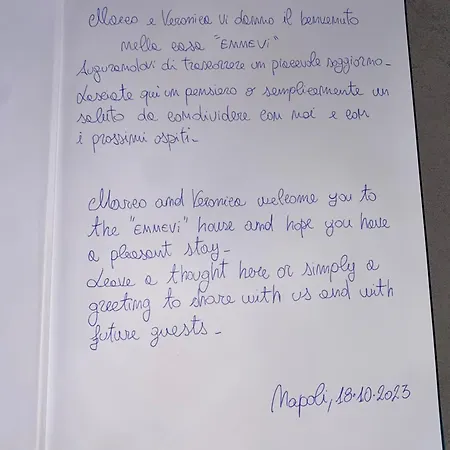 Marco e Veronica vi danno il benvenuto
nella casa "EMMEVI"
Augurandovi di trascorrere un piacevole soggiorno_
Lasciate qui un pensiero o semplicemente un
saluto da condividere con noi e con
i prossimi ospiti_
Marco and Veronica welcome you to
the "EMMEVI" house and hope you have
a pleasant stay_
Leave a thought here or simply a
greeting to share with us and with
future guests_
Napoli, 18.10.2023